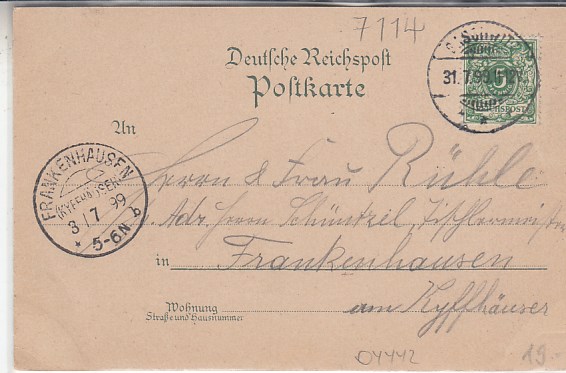 7114
Deutsche Reichspost
Postkarte
31.7.99
5
REICHSPOST
An
FRANKENHAUSEN
(KYFFHÄUSER)
31 7 99
* 5-6N b
Herrn & Frau Rühle
Adr. Herrn Schüntzel, Tischlermeister
in Frankenhausen
am Kyffhäuser
Wohnung
Straße und Hausnummer
04442
19.-